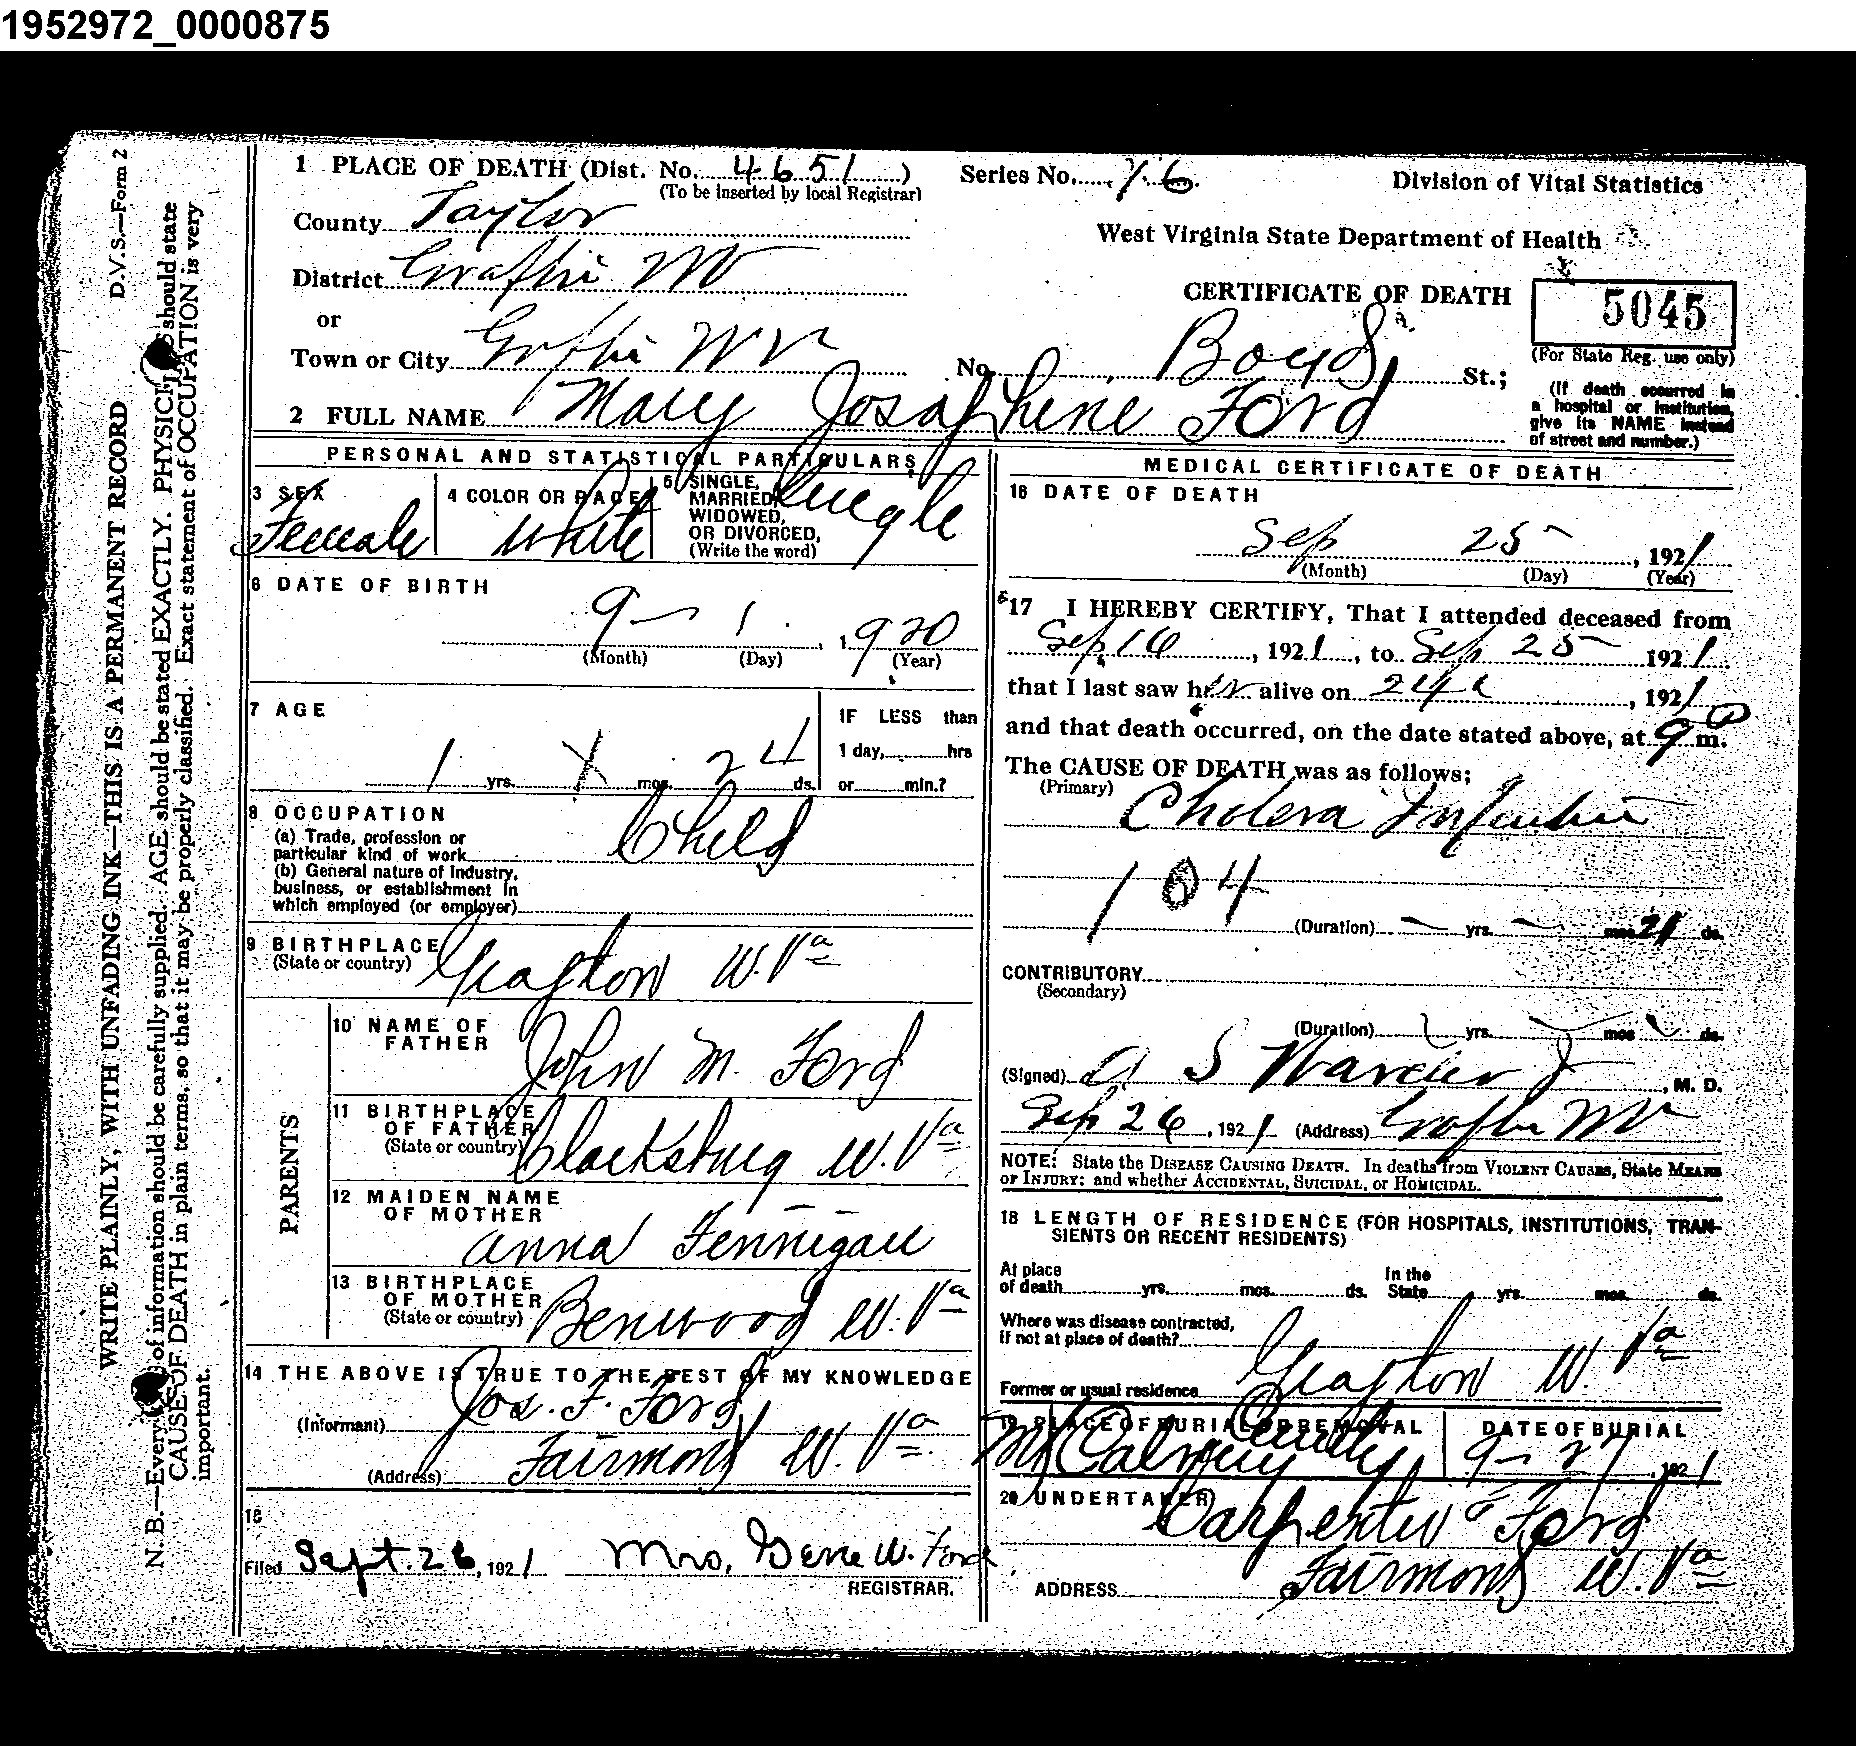 1952972_0000875
D.V.S.—Form 2
WRITE PLAINLY, WITH UNFADING INK—THIS IS A PERMANENT RECORD
N. B.—Every of information should be carefully supplied. AGE should be stated EXACTLY. PHYSICI should state
CAUSE OF DEATH in plain terms, so that it may be properly classified. Exact statement of OCCUPATION is very
important.
1 PLACE OF DEATH (Dist. No. 4651)
(To be inserted by local Registrar)
Series No. 76
Division of Vital Statistics
County Taylor
West Virginia State Department of Health
District Grafton WV
CERTIFICATE OF DEATH
5045
(For State Reg. use only)
or
Town or City Grafton W V
No. Boyd St.;
(If death occurred in
a hospital or institution,
give its NAME instead
of street and number.)
2 FULL NAME Mary Josaphine Ford
PERSONAL AND STATISTICAL PARTICULARS
3 SEX
Female
4 COLOR OR RACE
White
5 SINGLE,
MARRIED,
WIDOWED,
OR DIVORCED,
(Write the word)
Single
6 DATE OF BIRTH
9 — 1 , 1920
(Month) (Day) (Year)
7 AGE
1 yrs. X mos. 24 ds.
IF LESS than
1 day, hrs
or min.?
8 OCCUPATION
(a) Trade, profession or
particular kind of work
Child
(b) General nature of Industry,
business, or establishment in
which employed (or employer)
9 BIRTHPLACE
(State or country)
Grafton W. Va
PARENTS
10 NAME OF
FATHER
John M. Ford
11 BIRTHPLACE
OF FATHER
(State or country)
Clarksburg W. Va
12 MAIDEN NAME
OF MOTHER
Anna Fennigan
13 BIRTHPLACE
OF MOTHER
(State or country)
Benwood W. Va
14 THE ABOVE IS TRUE TO THE BEST OF MY KNOWLEDGE
(Informant) Jos. F. Ford
(Address) Fairmont W. Va.
15
Filed Sept. 26, 1921 Mrs. Gene W. Ford
REGISTRAR.
MEDICAL CERTIFICATE OF DEATH
16 DATE OF DEATH
Sep 25 , 1921
(Month) (Day) (Year)
17 I HEREBY CERTIFY, That I attended deceased from
Sep 16 , 1921, to Sep 25 1921
that I last saw her alive on 24 , 1921
and that death occurred, on the date stated above, at 9 P m.
The CAUSE OF DEATH was as follows;
(Primary)
Cholera Infantum
104
(Duration) — yrs. — mos 21 ds.
CONTRIBUTORY
(Secondary)
(Duration) yrs. mos ds.
(Signed) A S Warder , M. D.
Sep 26 , 1921 (Address) Grafton W V
NOTE: State the DISEASE CAUSING DEATH. In deaths from VIOLENT CAUSES, State MEANS
OF INJURY; and whether ACCIDENTAL, SUICIDAL, or HOMICIDAL.
18 LENGTH OF RESIDENCE (FOR HOSPITALS, INSTITUTIONS, TRAN-
SIENTS OR RECENT RESIDENTS)
At place
of death yrs. mos. ds.
In the
State yrs. mos. ds.
Where was disease contracted,
if not at place of death?
Former or usual residence Grafton W. Va
19 PLACE OF BURIAL OR REMOVAL
Mt Calvary Cemetery
DATE OF BURIAL
9 — 27 1921
20 UNDERTAKER
Carpenter & Ford
ADDRESS Fairmont W. Va